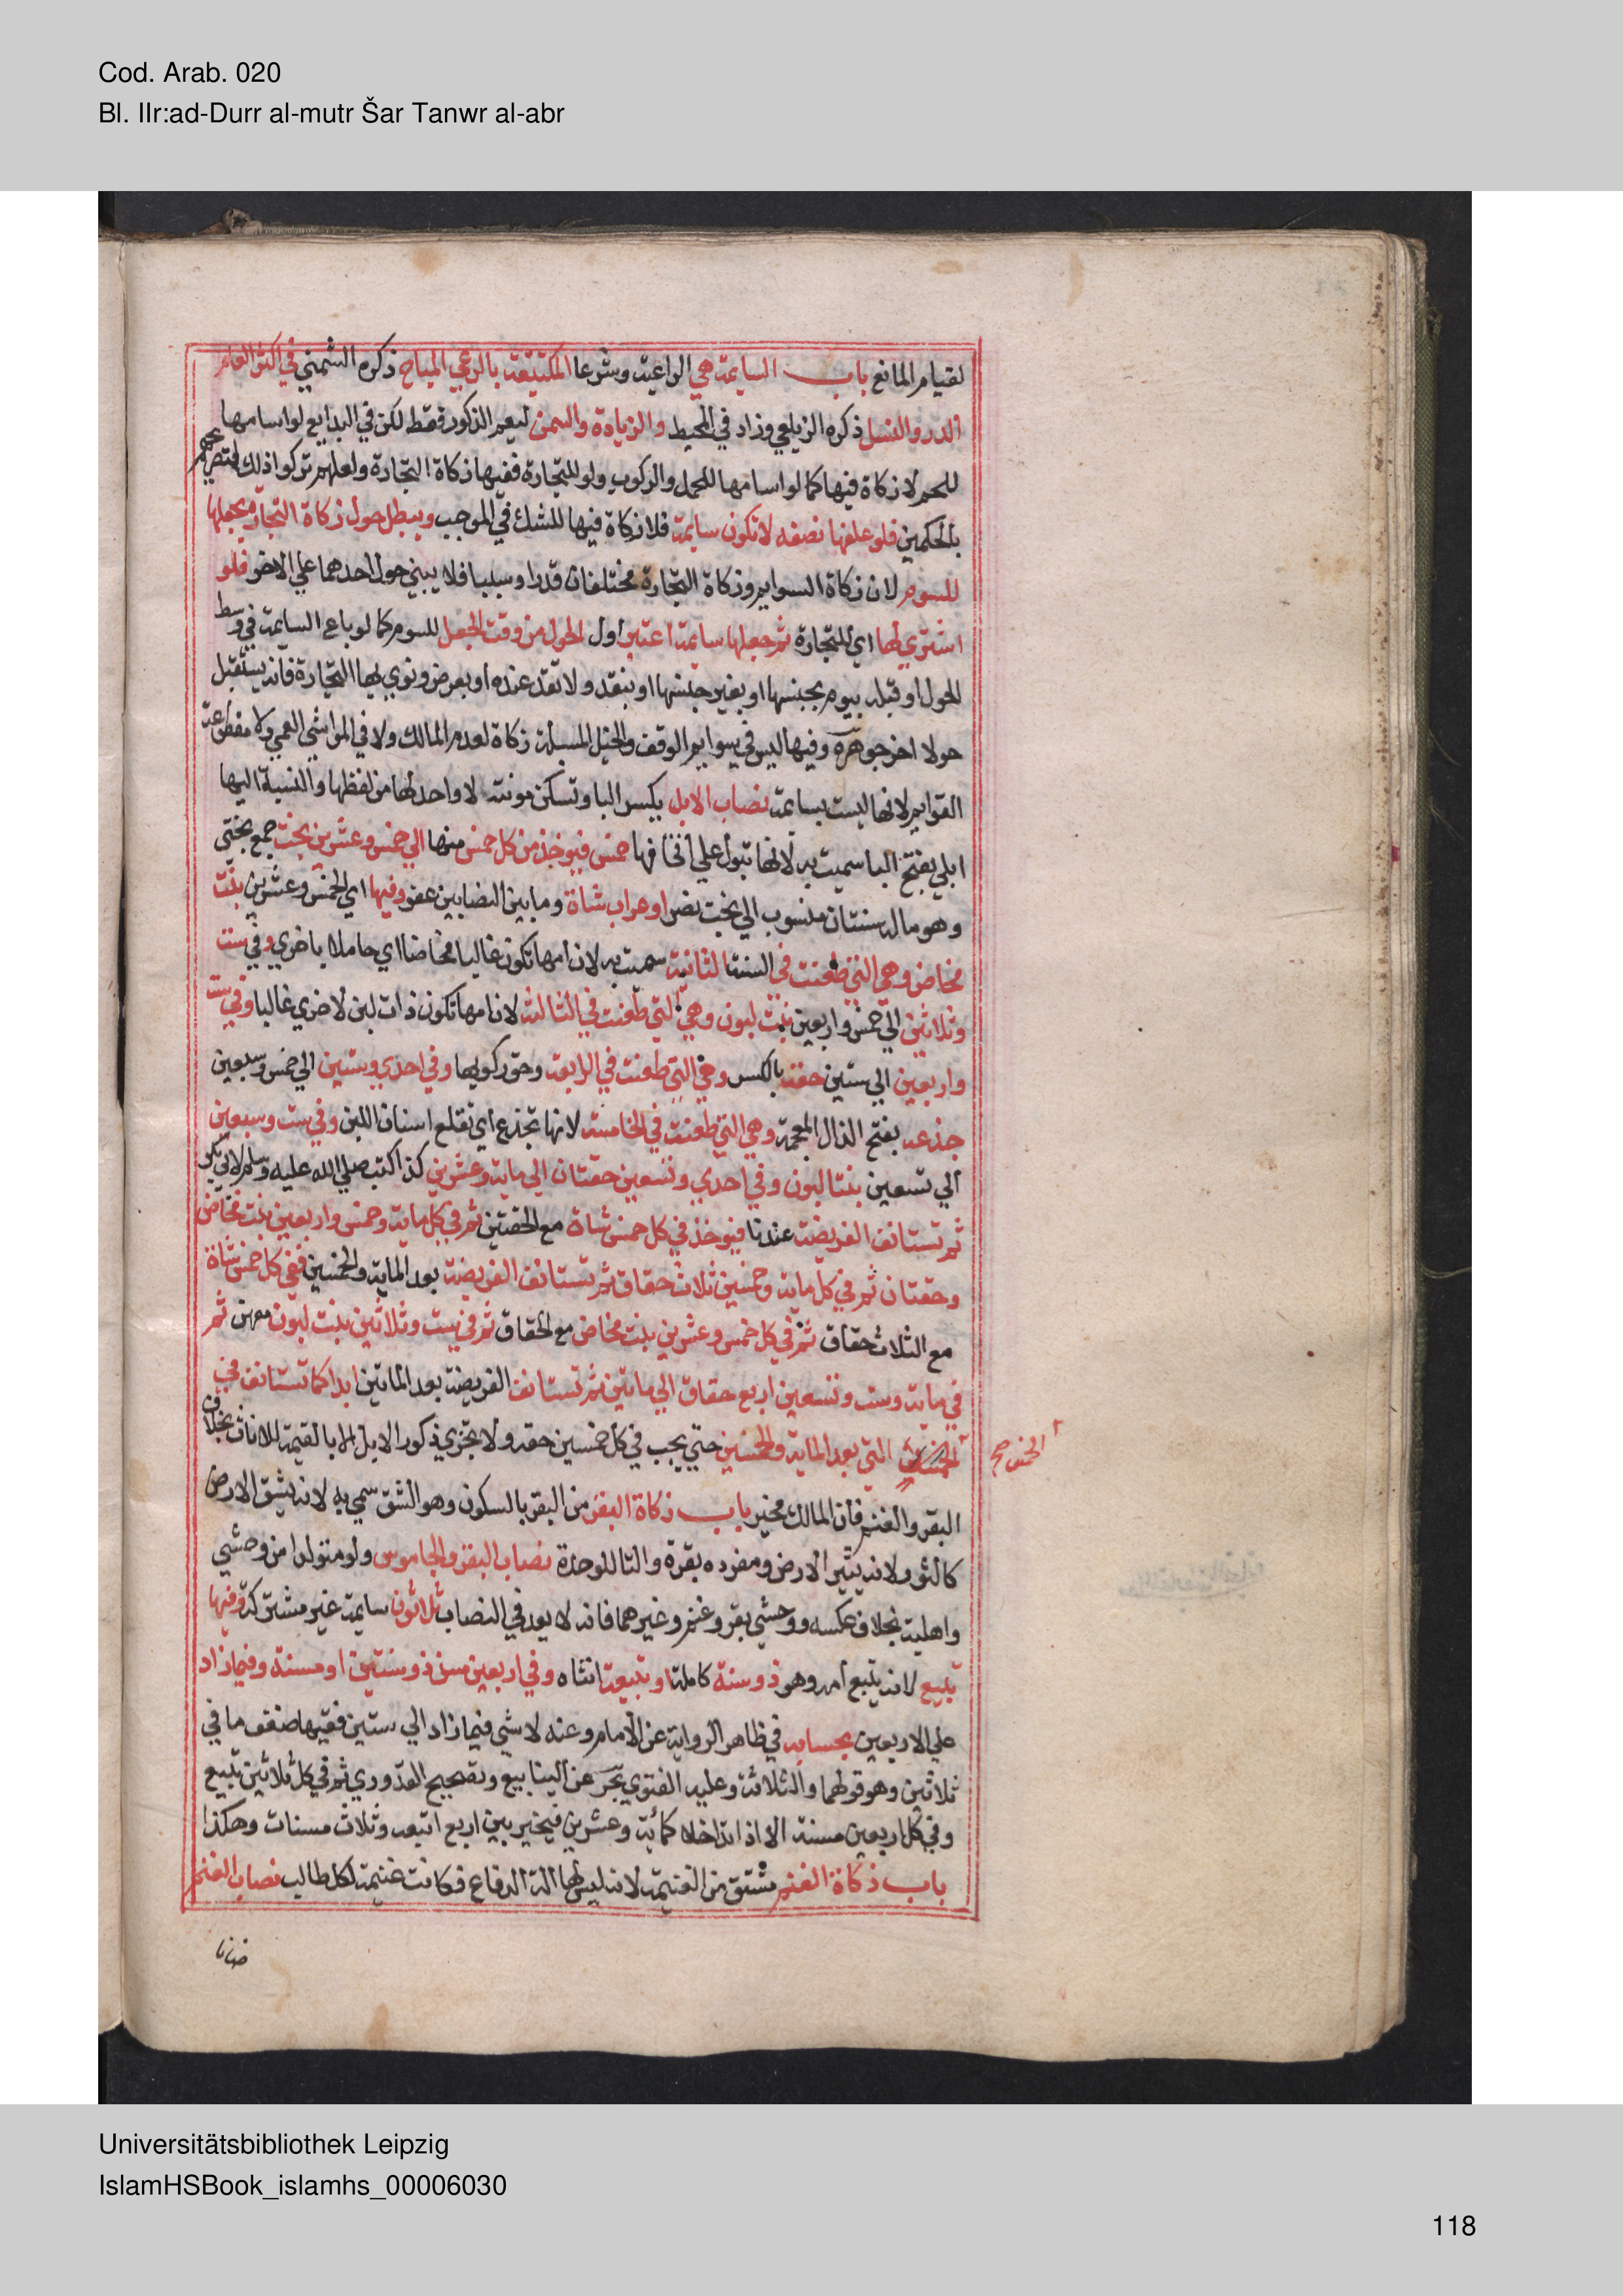 Cod. Arab. 020
Bl. IIr:ad-Durr al-mutr Šar Tanwr al-abr
لقيام المانع باب السايمة هي الراعية وشرعا المكتفية بالرعي المباح ذكره الشمني في اكثر العام
الدر والنسل ذكره الزيلعي وزاد في المحيط والزيادة والسمن ليعم الذكور فقط لكن في البدايع لو اسامها
للحم لا زكاة فيها كما لو اسامها للحمل والركوب ولو للتجارة ففيها زكاة التجارة ولعلهم تركوا ذلك لتصريحهم
بالحكمين فلو علفها نصفه لا تكون سايمة فلا زكاة فيها للشك في الموجب ويبطل حول زكاة التجارة بجعلها
للسوم لان زكاة السوايم وزكاة التجارة مختلفان قدرا وسببا فلا يبني حول احدهما علي الاخر فلو
اشتري لها اي للتجارة ثم جعلها سايمة اعتبر اول الحول من وقت الجعل للسوم كما لو باع السايمة في وسط
الحول او قبله بيوم بجنسها او بغير جنسها او بنقد ولا نقد عنده او بعرض ونوي بها التجارة فانه يستقبل
حولا اخر جوهرة وفيها ليس في سوايم الوقف والخيل المسبلة زكاة لعدم المالك ولا في المواشي العمي ولا مقطوعة
القوايم لانها ليست بسايمة نصاب الابل بكسر البا وتسكن مونثة لا واحد لها من لفظها والنسبة اليها
ابلي بفتح البا سميت به لانها تبول علي افخاذها خمس فيوخذ من كل خمس منها الي خمس وعشرين بخت جمع بختي
وهو ماله سنتان منسوب الي بخت نصر او عراب شاة وما بين النصابين عفو وفيها اي الخمس وعشرين بنت
مخاض وهي التي طعنت في السنة الثانية سميت به لان امها تكون غالبا مخاضا اي حاملا باخري وفي ست
وثلاثين الي خمس واربعين بنت لبون وهي التي طعنت في الثالثة لان امها تكون ذات لبن لاخري غالبا وفي ست
واربعين الي ستين حقة بالكسر وهي التي طعنت في الرابعة وحق ركوبها وفي احدي وستين الي خمس وسبعين
جذعة بفتح الذال المعجمة وهي التي طعنت في الخامسة لانها تجذع اي تقلع اسنان اللبن وفي ست وسبعين
الي تسعين بنتا لبون وفي احدي وتسعين حقتان الي ماية وعشرين كذا كتب صلي الله عليه وسلم لابي بكر
ثم تستانف الفريضة عندنا فيوخذ في كل خمس شاة مع الحقتين ثم في كل ماية وخمس واربعين بنت مخاض
وحقتان ثم في كل ماية وخمسين ثلاث حقاق ثم تستانف الفريضة بعد الماية والخمسين ففي كل خمس شاة
مع الثلاث حقاق ثم في كل خمس وعشرين بنت مخاض مع الحقاق ثم في ست وثلاثين بنت لبون معهن ثم
في ماية وست وتسعين اربع حقاق الي مايتين ثم تستانف الفريضة بعد المايتين ابدا كما تستانف في
التي بعد الماية والخمسين حتي يجب في كل خمسين حقة ولا تجزي ذكور الابل الا بالقيمة للاناث بخلاف
البقر والغنم فان المالك مخير باب زكاة البقر من البقر بالسكون وهو الشق سمي به لانه يشق الارض
كالثور لانه يثير الارض ومفرده بقرة والتا للوحدة نصاب البقر والجاموس ولو متولدا من وحشي
واهلية بخلاف عكسه ووحشي بقر وغنم وغيرهما فانه لا يعد في النصاب ثلاثون سايمة غير مشتركة وفيها
تبيع لانه يتبع امه وهو ذو سنة كاملة او تبيعة انثاه وفي اربعين مسن ذو سنتين او مسنة وفيما زاد
علي الاربعين بحسابه في ظاهر الرواية عن الامام وعنه لا شي فيما زاد الي ستين ففيها ضعف ما في
ثلاثين وهو قولهما والثلاثة وعليه الفتوي بحر عن الينابيع وتصحيح القدوري ثم في كل ثلاثين تبيع
وفي كل اربعين مسنة الا اذا تداخلا كمائة وعشرين فيخير بين اربع اتبعة وثلاث مسنات وهكذا
باب زكاة الغنم مشتق من الغنيمة لانه ليس لها الة الدفاع فكانت غنيمة لكل طالب نصاب الغنم
الخمسين صح
ضانا
Universitätsbibliothek Leipzig
IslamHSBook_islamhs_00006030
118